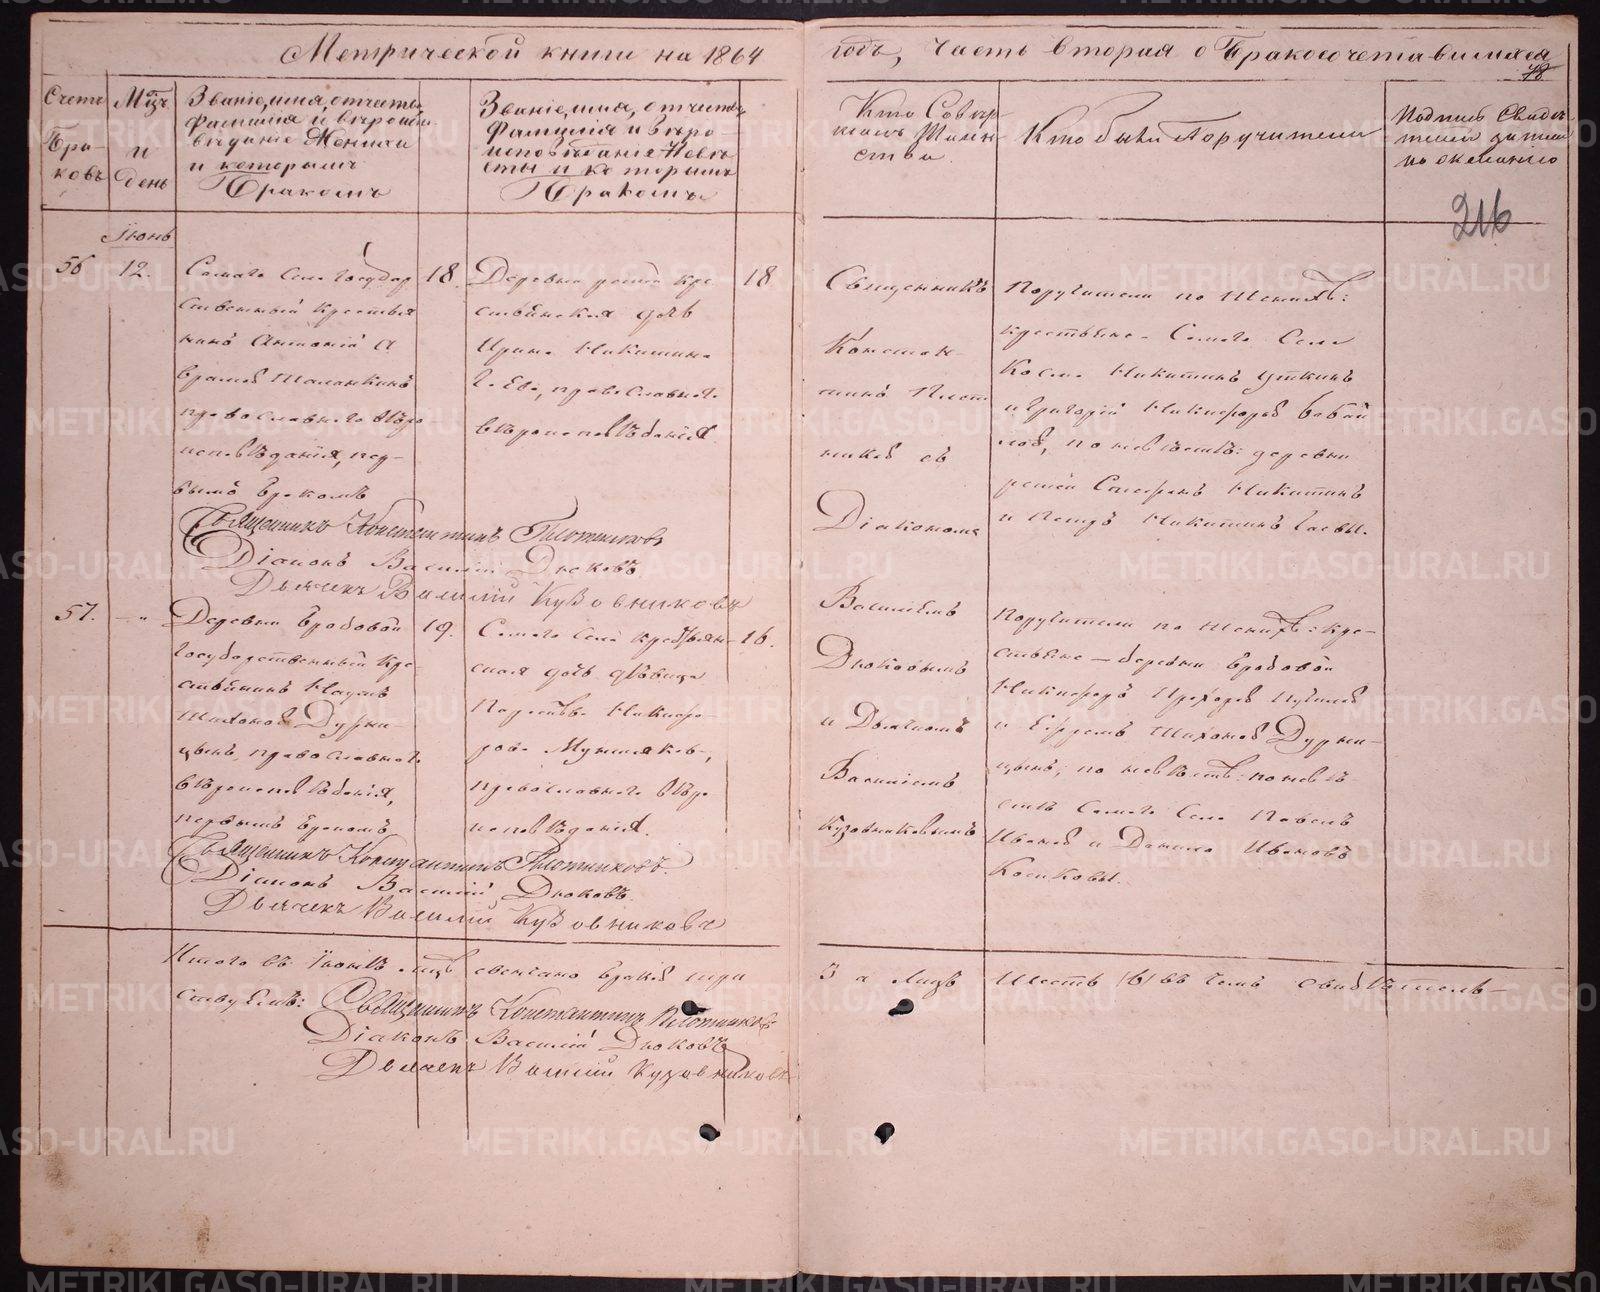 Метрической книги на 1864
годъ, Часть вторая о Бракосочетавшихся
78
Счетъ
Бра-
ковъ
Мцъ
и
день
Званіе, имя, отчество
фамилія и вѣроиспо-
вѣданіе Жениха
и которымъ
Бракомъ
Званіе, имя, отчество
Фамилія и вѣро-
исповѣданіе Невѣ-
сты и которымъ
Бракомъ
Кто Совер-
шалъ Таин-
ства
Кто были Поручители
Подпись Свидѣ-
телей записи
по желанію
216
Іюнь
56
12.
Самаго Села Государ
ственный Крестья
нинъ Антоній А
врамовъ
православнаго вѣро
исповѣданія, пер-
вымъ бракомъ
18.
Деревни крe
стьянская дочь
Ирина Никитина
православнаго
вѣроисповѣданія.
18
Священникъ
Констан-
тинъ Плот
никовъ съ
Діакономъ
Василіемъ
Дюковымъ
и Дьячкомъ
Василіемъ
Кузовниковымъ
Поручители по Женихѣ:
крестьяне Самаго Села
Косма Никитинъ Уткинъ
и Григорій Никифоровъ
по невѣстѣ: деревни
Никитинъ
и Петръ Никитинъ
Священникъ Константинъ Плотниковъ
Діаконъ Василій Дюковъ
Дьячекъ Василій Кузовниковъ
57.
- "
Деревни Бродовой
Государственный Кре-
стьянинъ Наумъ
Тихоновъ Дурни-
цынъ, православнаго
вѣроисповѣданія,
первымъ бракомъ
19.
Самаго Села крестьян-
ская дочь дѣвица
Никифо-
рова
православнаго вѣро
исповѣданія.
16.
Поручители по Женихѣ: кре-
стьяне — деревни Бродовой
Никифоръ Прохоровъ
и Ефремъ Тихоновъ Дурни-
цынъ; по невѣстѣ: по невѣ-
стѣ Самаго Села Павелъ
Ивановъ и Данило Ивановъ
Косиковы.
Священникъ Константинъ Плотниковъ.
Діаконъ Василій Дюковъ.
Дьячекъ Василій Кузовниковъ
Итого въ Іюнѣ мцѣ свенчано браковъ три
3 а Лицъ Шесть /6/ въ чемъ свидѣтель-
ствуемъ: Священникъ Константинъ Плотниковъ
Діаконъ Василій Дюковъ
Дьячекъ Василій Кузовниковъ
METRIKI.GASO-URAL.RU